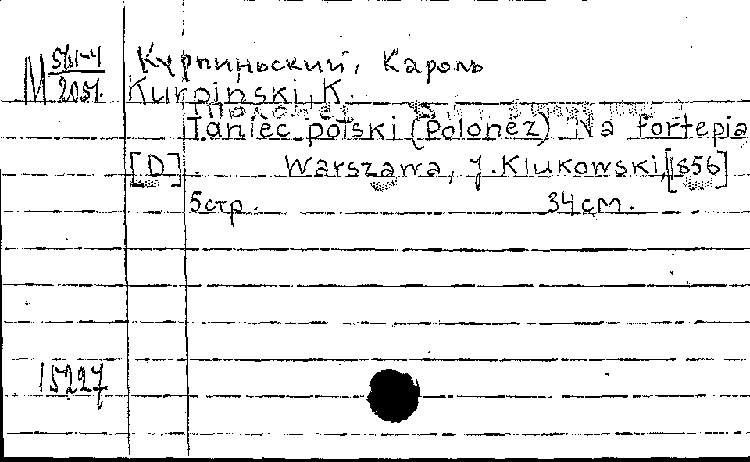 М 561-4
2051.
Курпиньский, Кароль
Kurpinski, K.
Taniec polski (Polonez) Na fortepia
[D] Warszawa, J. Klukowski, [1856]
5 стр. 34 см.
15227